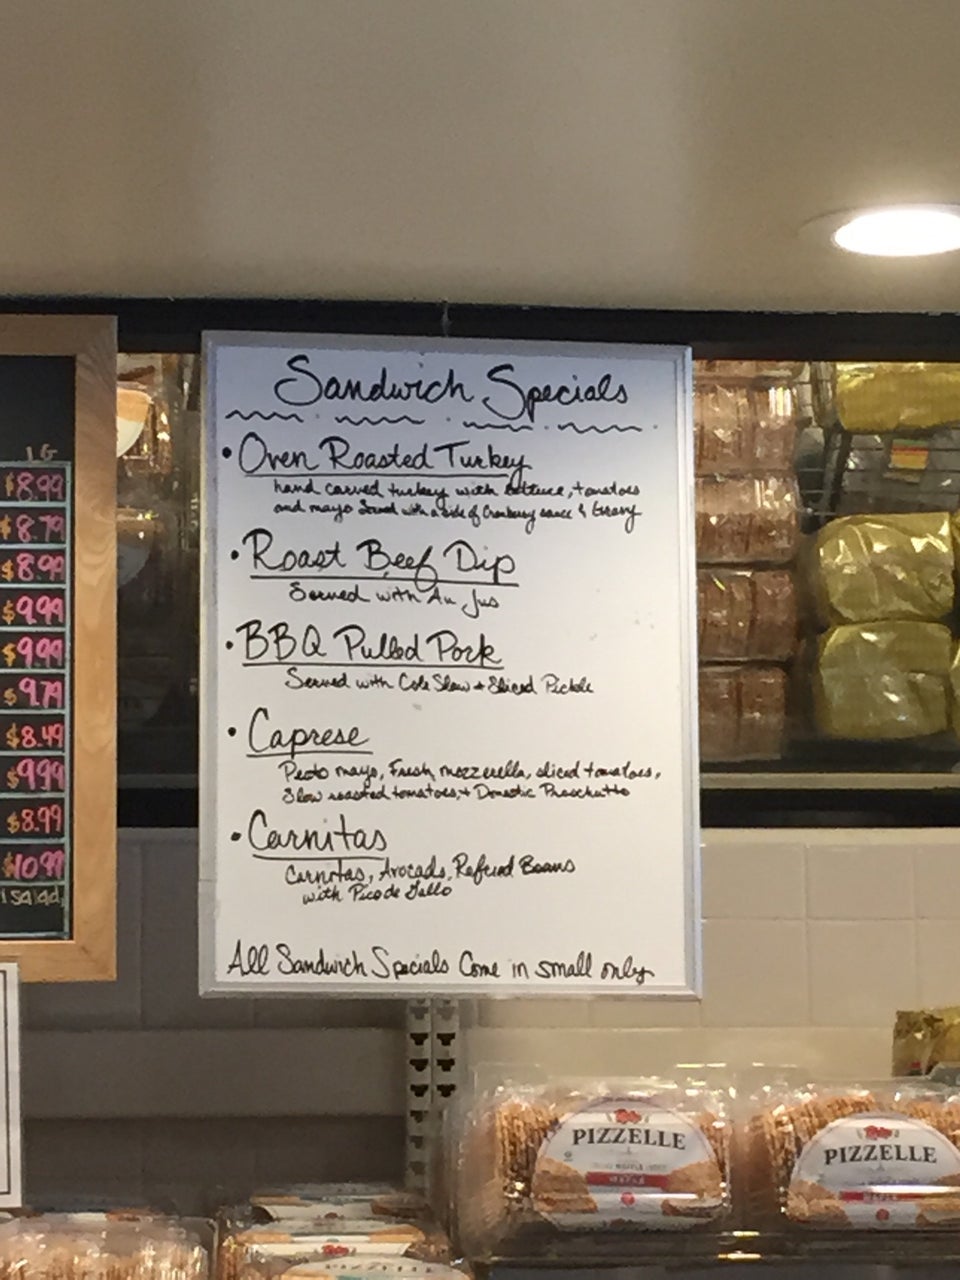 Sandwich Specials
• Oven Roasted Turkey
hand carved turkey with lettuce, tomatoes
and mayo Served with a side of Cranberry sauce & Gravy
• Roast Beef Dip
Served with Au Jus
• BBQ Pulled Pork
Served with Cole Slaw + Sliced Pickle
• Caprese
Pesto mayo, Fresh mozzerella, sliced tomatoes,
Slow roasted tomatoes, + Domestic Proschutto
• Carnitas
Carnitas, Avocado, Refried Beans
with Pico de Gallo
All Sandwich Specials Come in small only
LG
$8.99
$8.79
$8.99
$9.99
$9.99
$9.79
$8.49
$9.99
$8.99
$10.99
salad
PIZZELLE
PIZZELLE